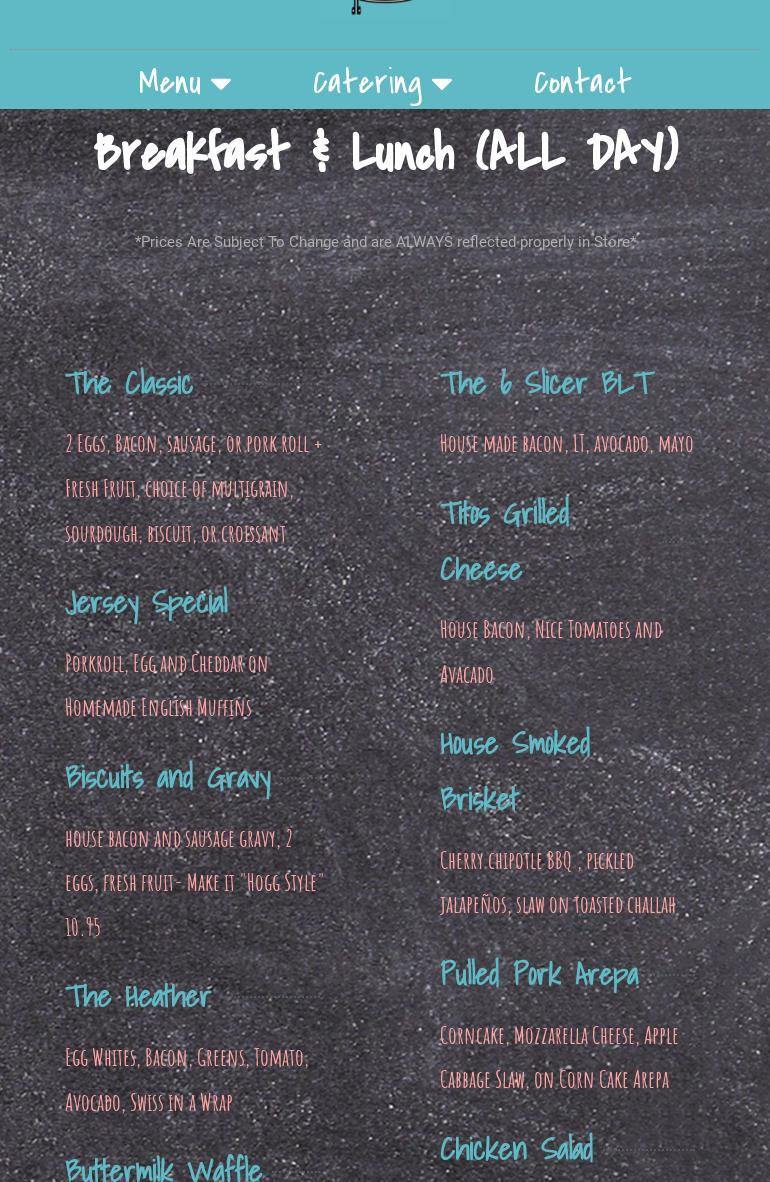 Menu
Catering
Contact
Breakfast & Lunch (ALL DAY)
*Prices Are Subject To Change and are ALWAYS reflected properly in Store*
The Classic
2 Eggs, Bacon, sausage, or pork roll +
Fresh Fruit, choice of multigrain,
sourdough, biscuit, or croissant
Jersey Special
Porkroll, Egg and Cheddar on
Homemade English Muffins
Biscuits and Gravy
house bacon and sausage gravy, 2
eggs, fresh fruit- Make it "Hogg Style"
10.95
The Heather
Egg Whites, Bacon, Greens, Tomato,
Avocado, Swiss in a Wrap
Buttermilk Waffle
The 6 Slicer BLT
House made bacon, LT, avocado, mayo
Titos Grilled
Cheese
House Bacon, Nice Tomatoes and
Avacado
House Smoked
Brisket
Cherry chipotle BBQ , pickled
jalapeños, slaw on toasted challah
Pulled Pork Arepa
Corncake, Mozzarella Cheese, Apple
Cabbage Slaw, on Corn Cake Arepa
Chicken Salad